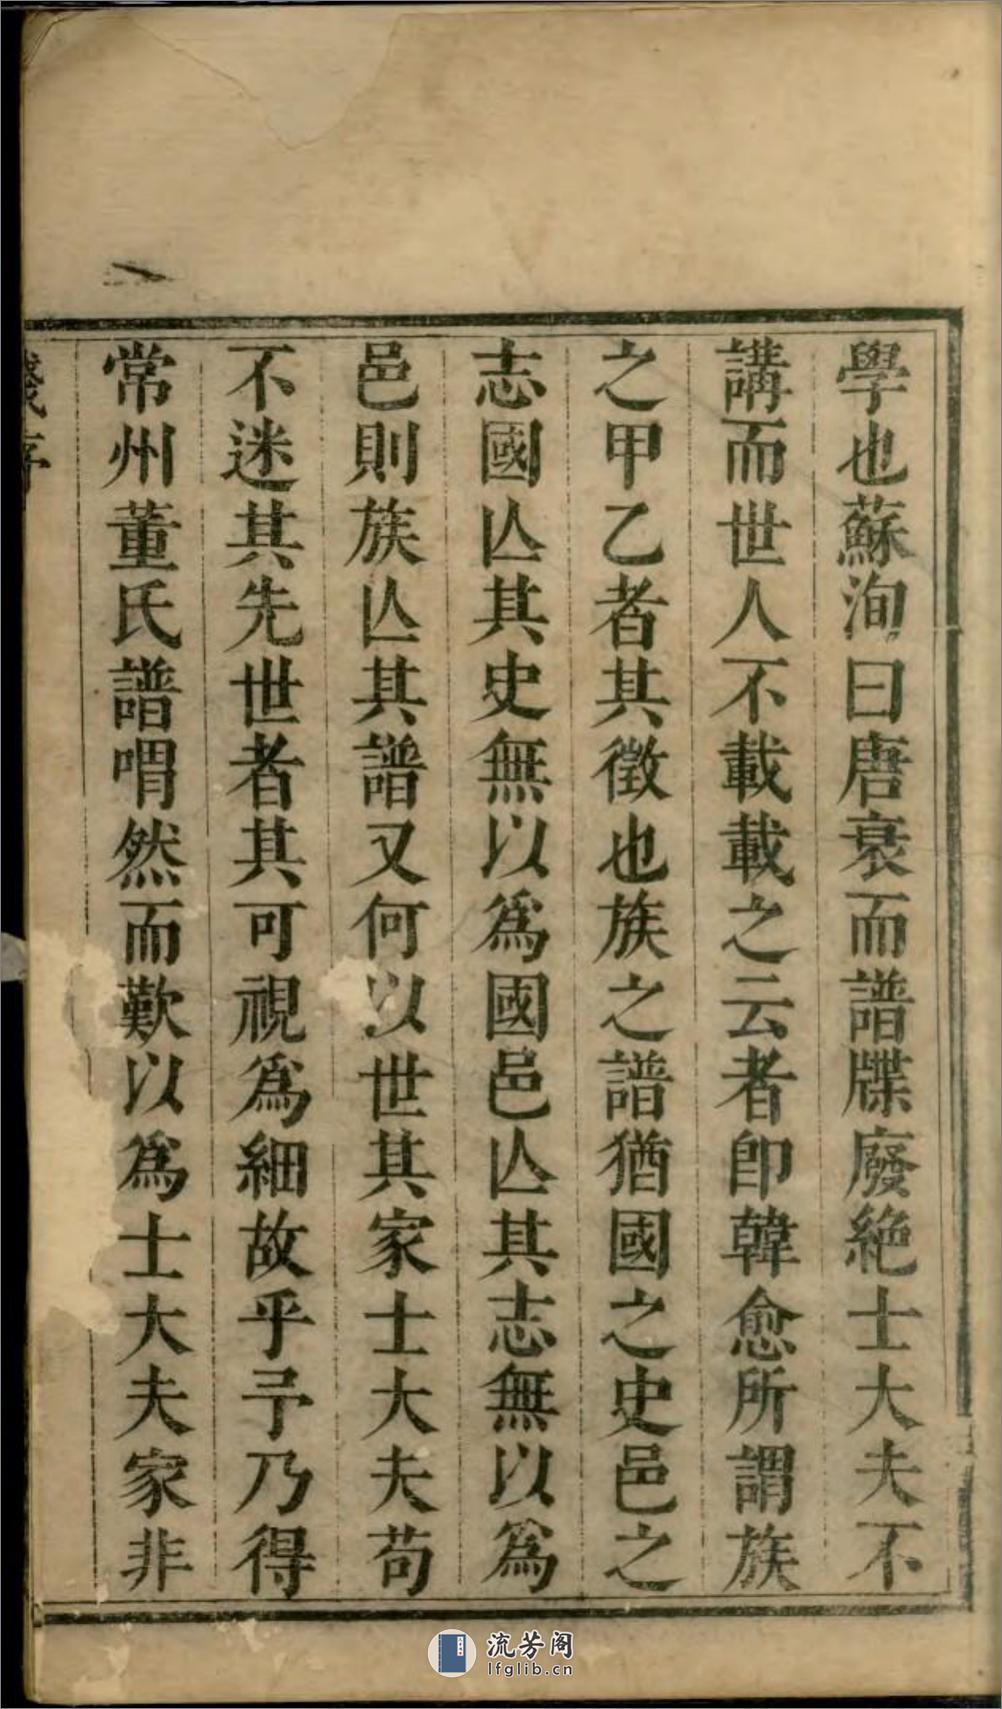 學也蘇洵曰唐衰而譜牒廢絶士大夫不
講而世人不載載之云者卽韓愈所謂族
之甲乙者其徵也族之譜猶國之史邑之
志國亾其史無以爲國邑亾其志無以爲
邑則族亾其譜又何以世其家士大夫苟
不迷其先世者其可視爲細故乎予乃得
常州董氏譜喟然而歎以爲士大夫家非
流芳阁
lfglib.cn